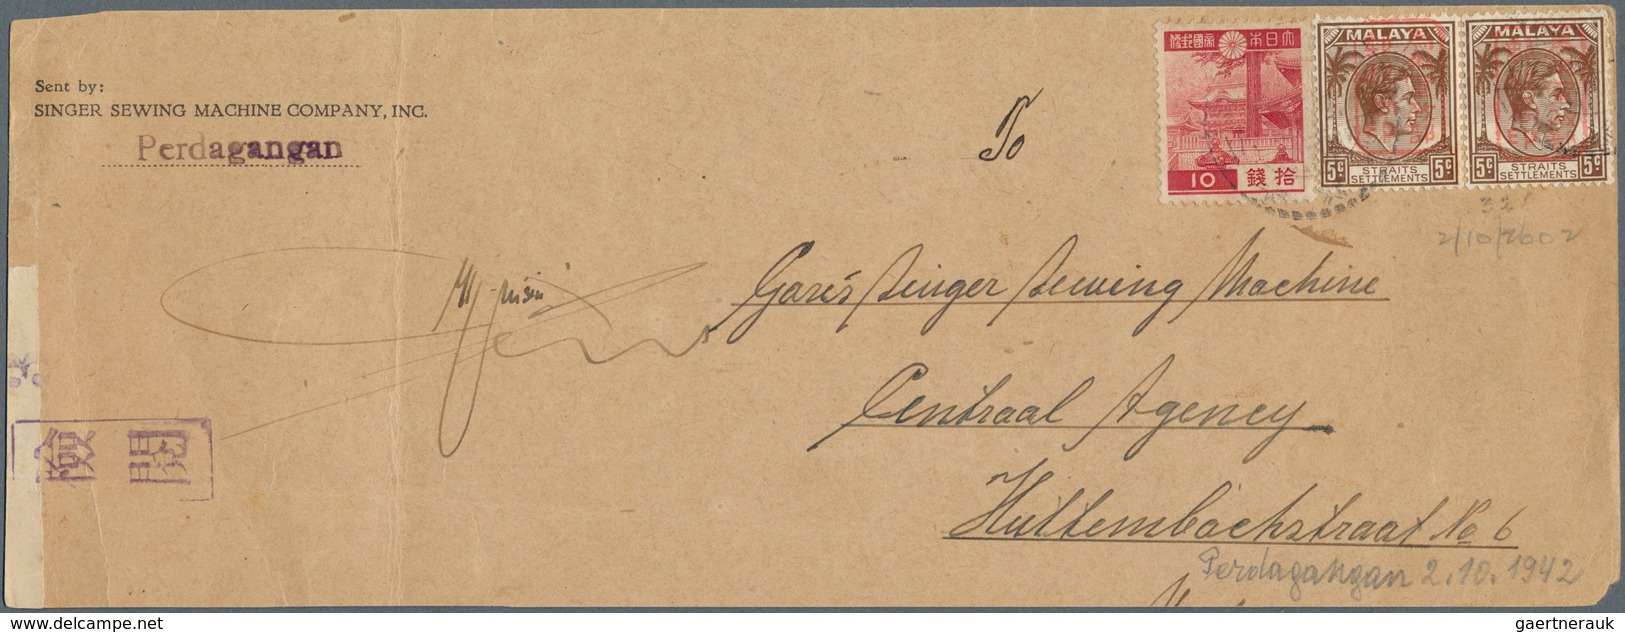 Sent by:
SINGER SEWING MACHINE COMPANY, INC.
Perdagangan
To
大日本帝國郵便
10 拾錢
MALAYA
5c STRAITS SETTLEMENTS 5c
MALAYA
5c STRAITS SETTLEMENTS 5c
32
2/10/2602
Singer Sewing Machine
Centraal Agency
Huttembachstraat No 6
Perdagangan 2.10.1942
檢閲
www.delcampe.net
gaertnerauk